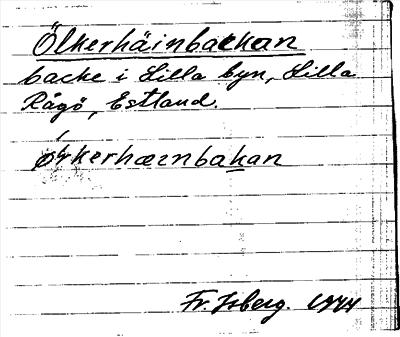 Ölkerhäinbackan
backe i Lilla byn, Lilla
Rågö, Estland.
ølkerhæinbakan
Fr. Isberg. 1944